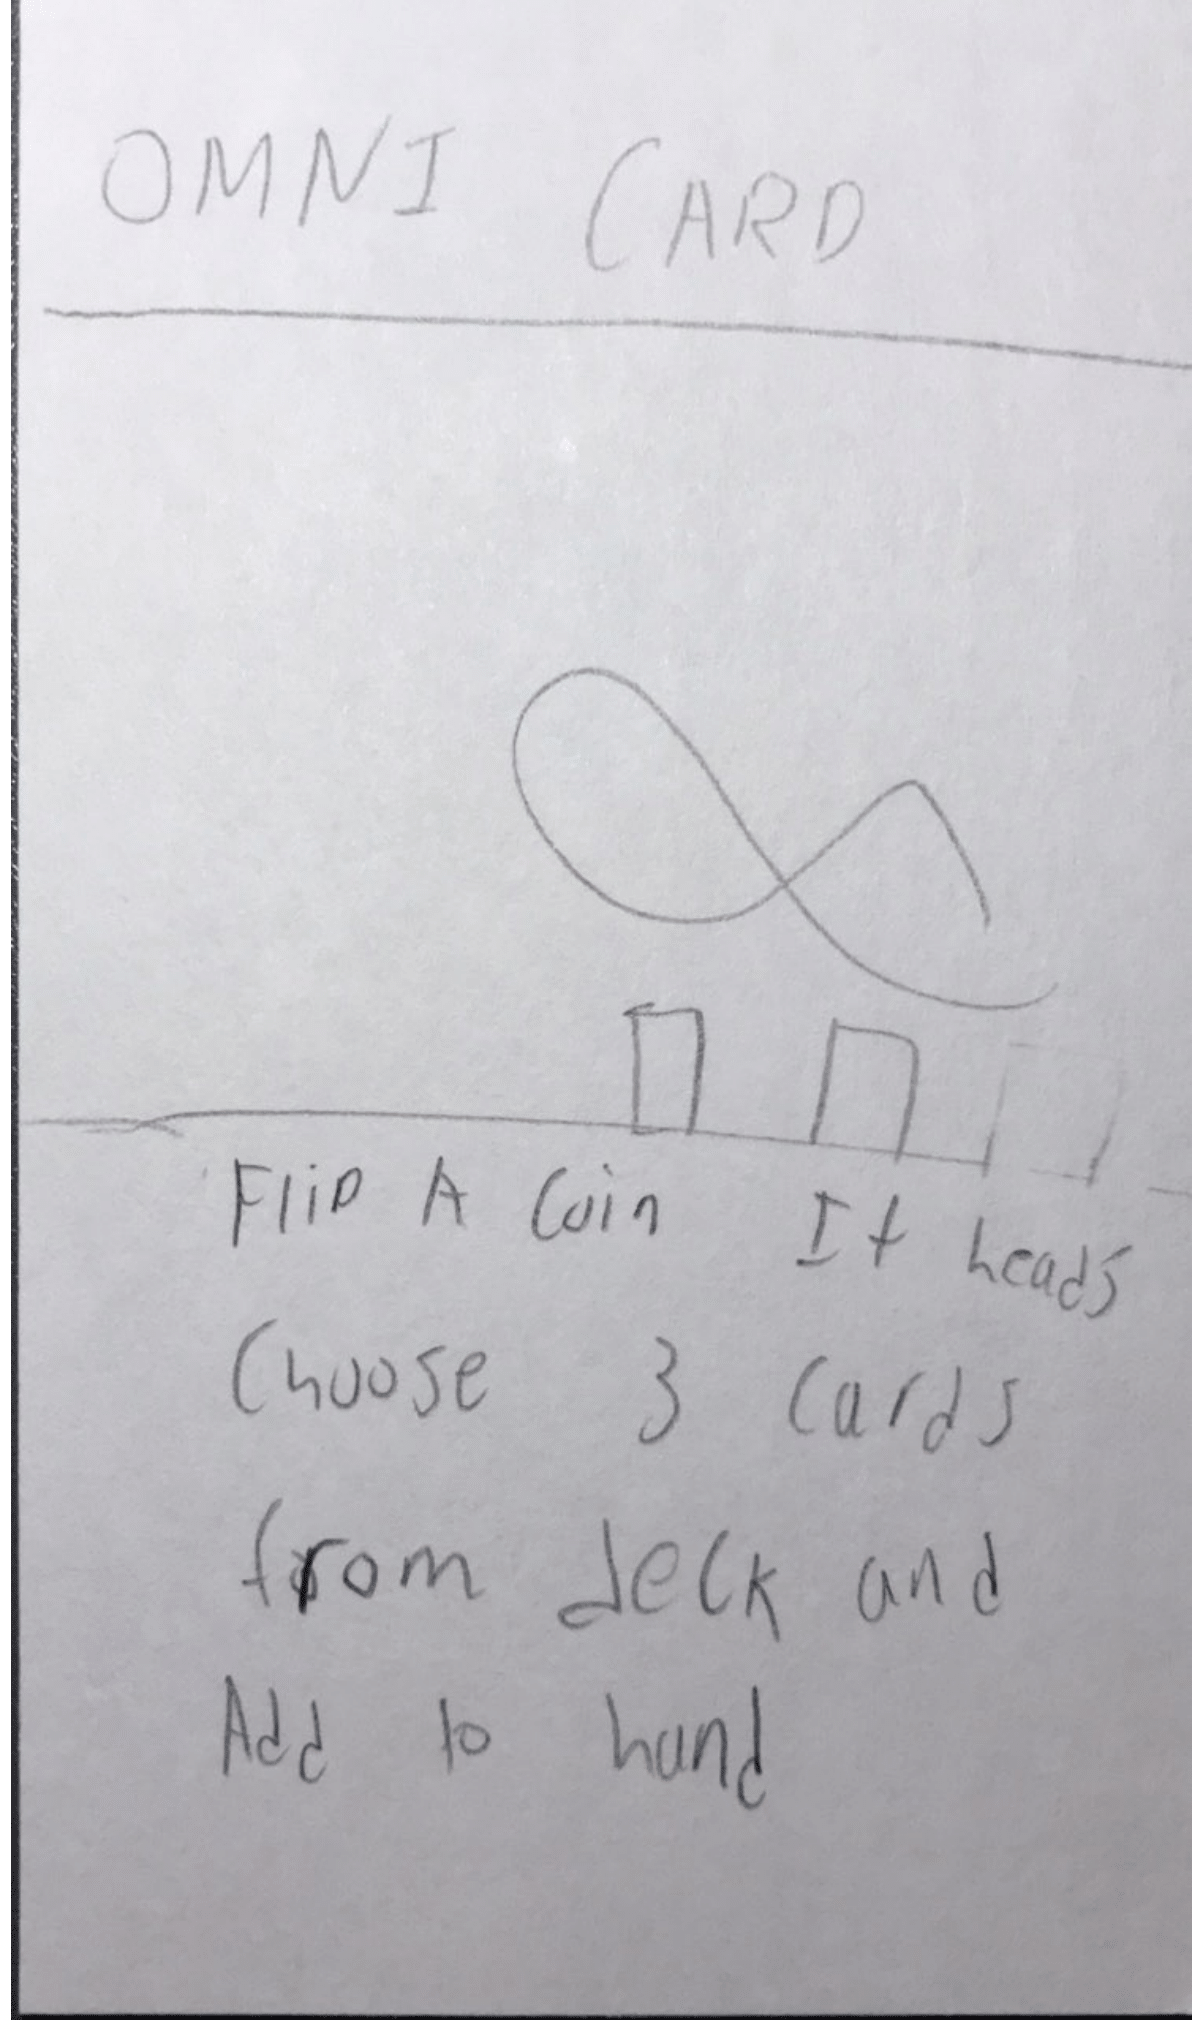 OMNI CARD
Flip A Coin If heads
Choose 3 Cards
from deck and
Add to hand